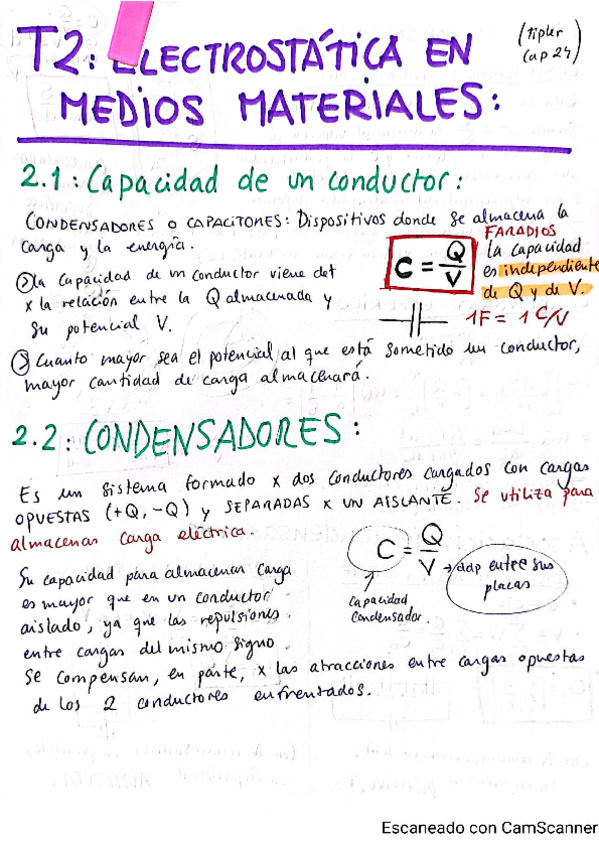 T2: ELECTROSTÁTICA EN
(tipler
Cap 24)
MEDIOS MATERIALES:
2.1: Capacidad de un conductor:
CONDENSADORES O CAPACITORES: Dispositivos donde se almacena la
carga y la energía.
FARADIOS
C = Q/V
la capacidad
es independiente
de Q y de V.
1F = 1 C/V
→ la capacidad de un conductor viene det
x la relación entre la Q almacenada y
su potencial V.
→ Cuanto mayor sea el potencial al que está sometido un conductor,
mayor cantidad de carga almacenará.
2.2: CONDENSADORES:
Es un sistema formado x dos conductores cargados con cargas
OPUESTAS (+Q, -Q) y SEPARADAS x UN AISLANTE. Se utiliza para
almacenar carga eléctrica.
C = Q/V → ddp entre sus
placas
capacidad
condensador.
Su capacidad para almacenar carga
es mayor que en un conductor
aislado, ya que las repulsiones
entre cargas del mismo signo
se compensan, en parte, x las atracciones entre cargas opuestas
de los 2 conductores enfrentados.
Escaneado con CamScanner